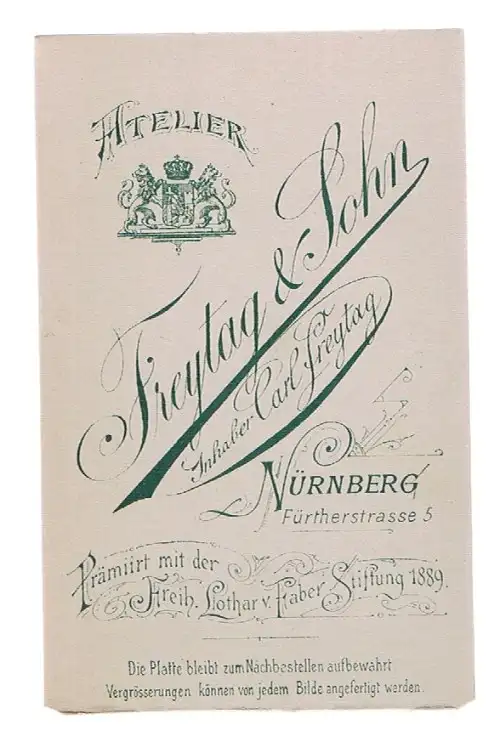 ATELIER
Freytag & Sohn
Inhaber Carl Freytag
NÜRNBERG
Fürtherstrasse 5
Prämiirt mit der
Freih. Lothar v. Faber Stiftung 1889.
Die Platte bleibt zum Nachbestellen aufbewahrt
Vergrösserungen können von jedem Bilde angefertigt werden.